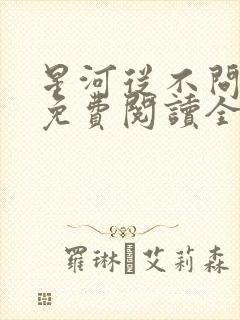 星河從不問
免費閱讀全
羅琳·艾莉森